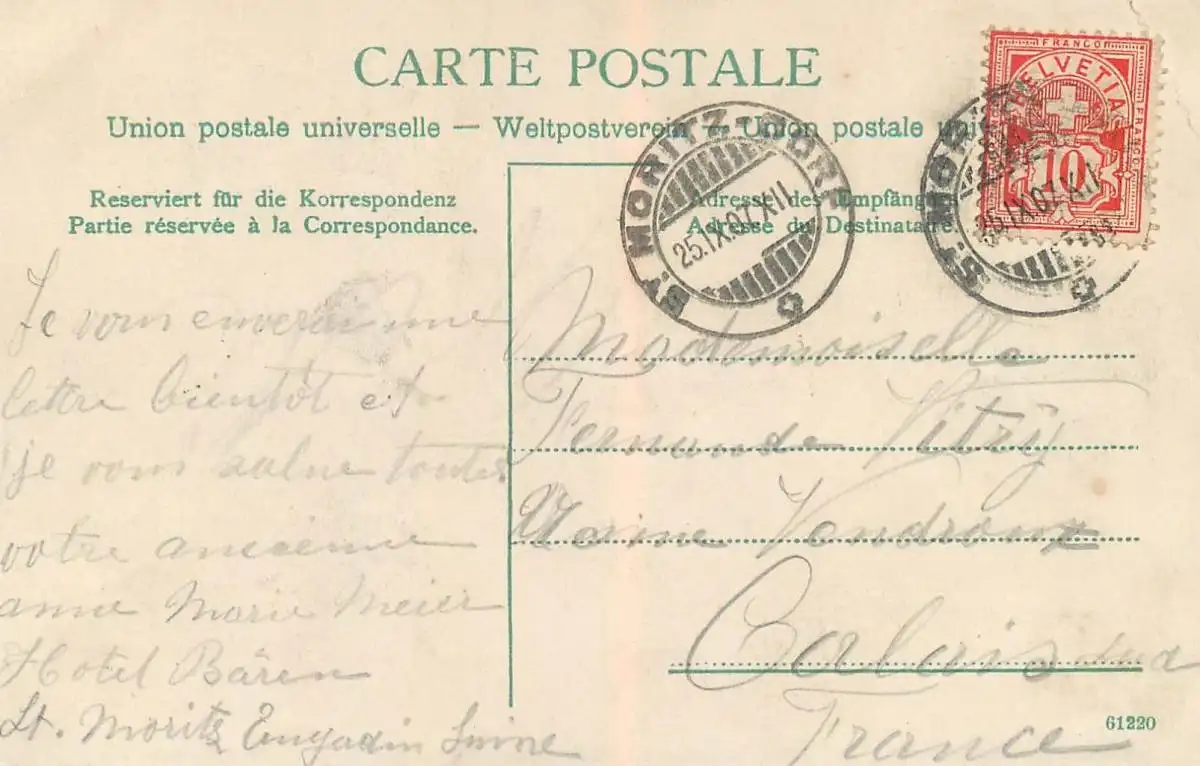 CARTE POSTALE
Union postale universelle — Weltpostverein — Union postale
FRANCO
HELVETIA
FRANCO
FRANCO
10
ST. MORITZ-DORF
25.IX.07.XII
ST. MORITZ
25.IX.07.XII
Reserviert für die Korrespondenz
Partie réservée à la Correspondance.
Adresse des Empfängers
Adresse du Destinataire.
Je vous enverai une
lettre bientôt et
je vous salue toutes
votre ancienne
amie Marie Meier
Hotel Bären
St. Moritz Engadin Suisse
Mademoiselle
Fernande Vitry
Usine Vendroux
Calais sud
France
61220